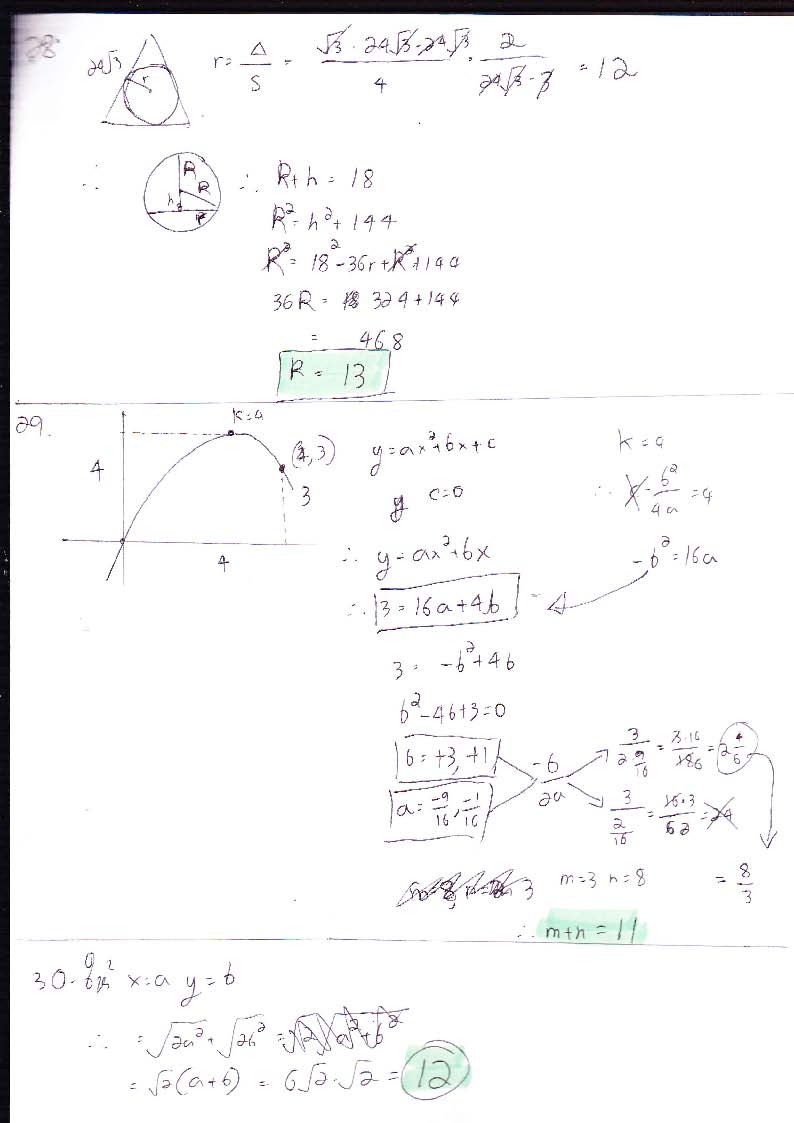 28
24√3 r r = Δ/S = √3 · 24√3 · 24√3 / 4 · 2 / 24√3 · 3 = 12
∴ R R h r ∴ R + h = 18
R² = h² + 144
R² = 18² - 36r + R² + 144
36R = 324 + 144
= 468
R = 13
29.
k=4
4
(4, 3)
3
4
y = ax² + bx + c k = 4
y c = 0 ∴ - b²/4a = 4
∴ y = ax² + bx -b² = 16a
∴ 3 = 16a + 4b
3 = -b² + 4b
b² - 4b + 3 = 0
b = +3, +1
a = -9/16, -1/16
-b/2a
3 / 2 9/16 = 3·16 / 18 6 = 2 4/6
3 / 2/16 = 16·3 / 2 = 24
= 8/3
3 m = 3 n = 8
∴ m + n = 11
30. x = a y = b
∴ = √2a² + √2b² = √2 √a² + b²
= √2 (a + b) = 6√2 · √2 = 12